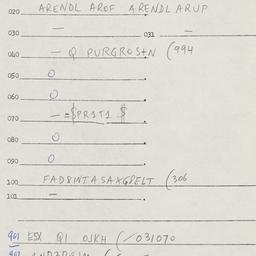 020 ARENDL AROF ARENDL ARUP
030 — 031 —
040 — Q PURGROS+N (994
050 0
060 0
070 — =$PR1T1 $
080 0
090 0
100 FAD8INTASAXGPELT (306
101 —
901 ESX QI OJKH (/031070